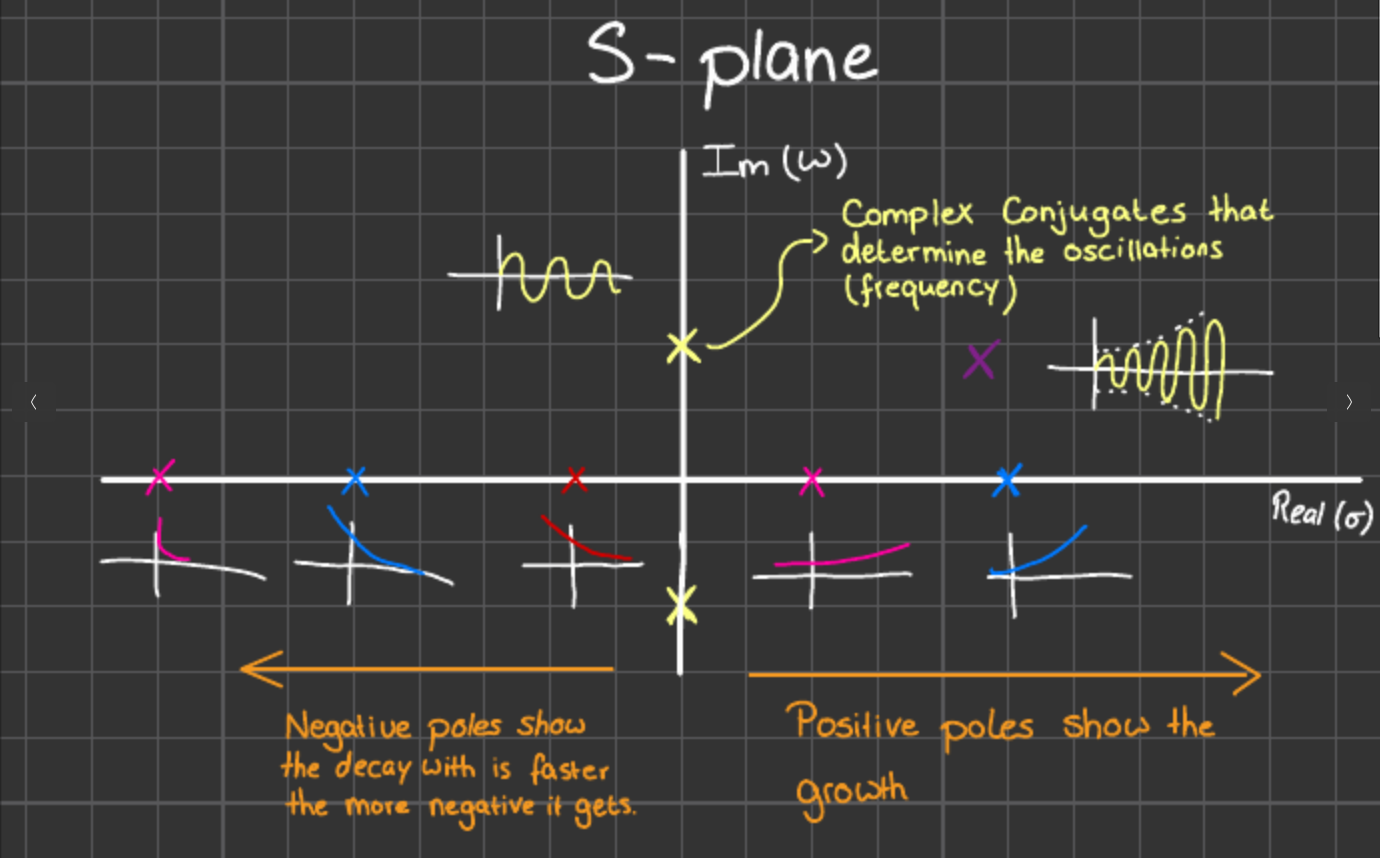 S-plane
Im (ω)
Complex Conjugates that
determine the oscillations
(frequency)
Real (σ)
Negative poles show
the decay with is faster
the more negative it gets.
Positive poles show the
growth